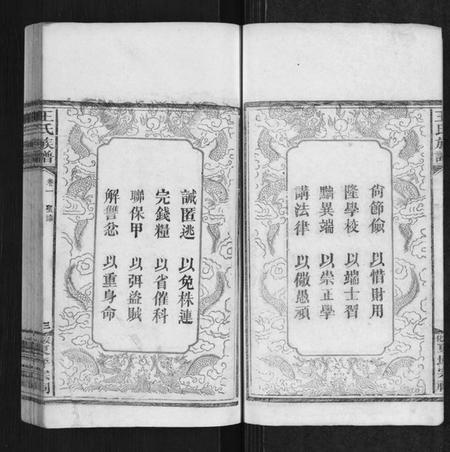 尙節儉 以惜財用
隆學校 以端士習
黜異端 以崇正學
講法律 以儆愚頑
王氏族譜
誡匿逃 以免株連
完錢糧 以省催科
聯保甲 以弭盜賊
解讐忿 以重身命
王氏族譜
卷一
聖諭
三